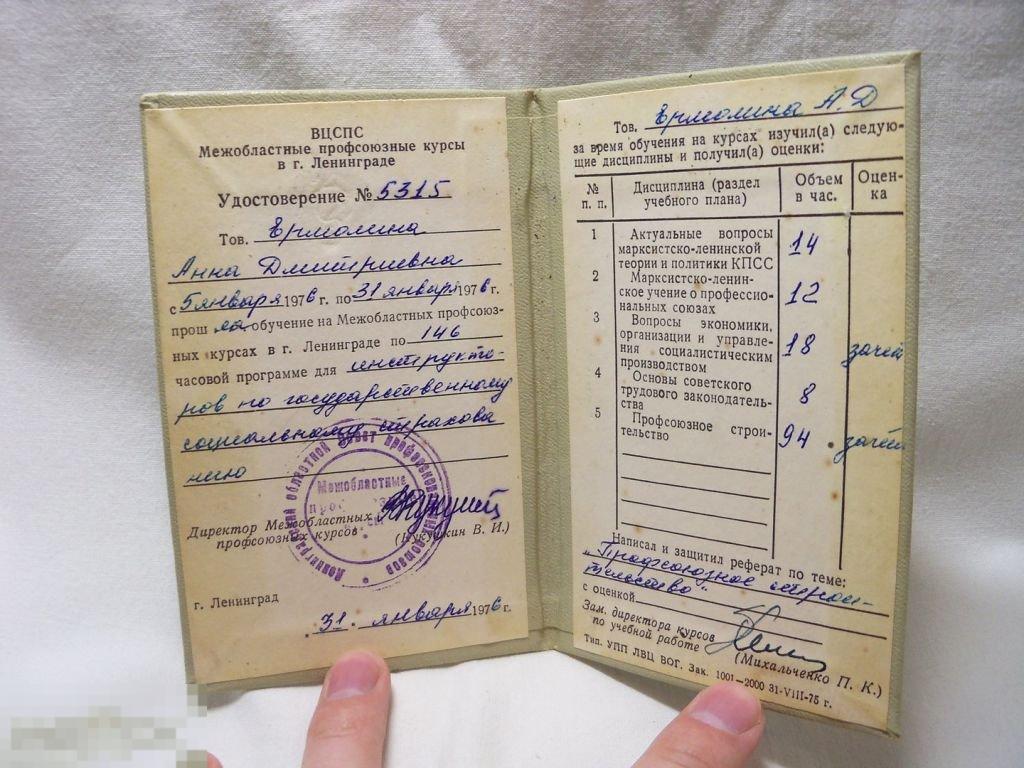 ВЦСПС
Межобластные профсоюзные курсы
в г. Ленинграде
Удостоверение № 5315
Тов. Ермолина
Анна Дмитриевна
с 5 января 1976 г. по 31 января 1976 г.
прошла обучение на Межобластных профсоюз-
ных курсах в г. Ленинграде по 146
часовой программе для инструкто-
ров по государственному
социальному страхова
нию
Директор Межобластных
профсоюзных курсов
(Кукушкин В. И.)
Межобластные
г. Ленинград
31 января 1976 г.
Тов. Ермолина А.Д
за время обучения на курсах изучил(а) следую-
щие дисциплины и получил(а) оценки:
№ п. п. Дисциплина (раздел учебного плана) Объем в час. Оцен-ка
1 Актуальные вопросы
марксистско-ленинской 14
теории и политики КПСС
2 Марксистско-ленин-
ское учение о профессио- 12
нальных союзах
3 Вопросы экономики,
организации и управле- 18 зачет
ния социалистическим
производством
4 Основы советского
трудового законодатель- 8
ства
5 Профсоюзное строи- 94 зачет
тельство
Написал и защитил реферат по теме:
„Профсоюзное строи-
тельство"
с оценкой
Зам. директора курсов
по учебной работе
(Михальченко П. К.)
Тип. УПП ЛВЦ ВОГ. Зак. 1001—2000 31-VIII-75 г.